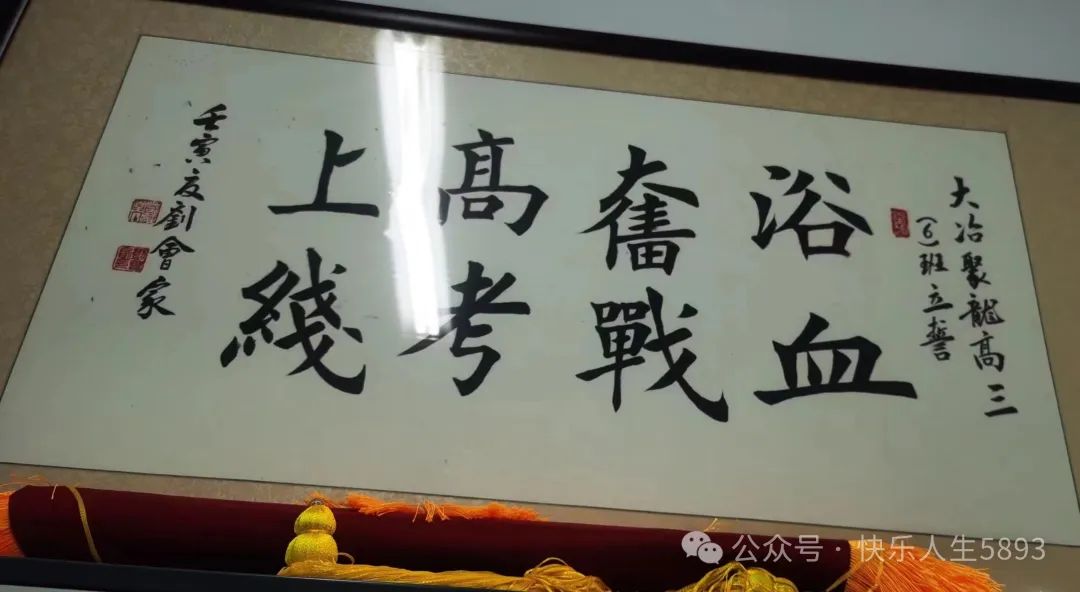 大冶聚龍高三
（6）班立誓
浴血
奮戰
髙考
上綫
壬寅夏劉會家
公众号·快乐人生5893